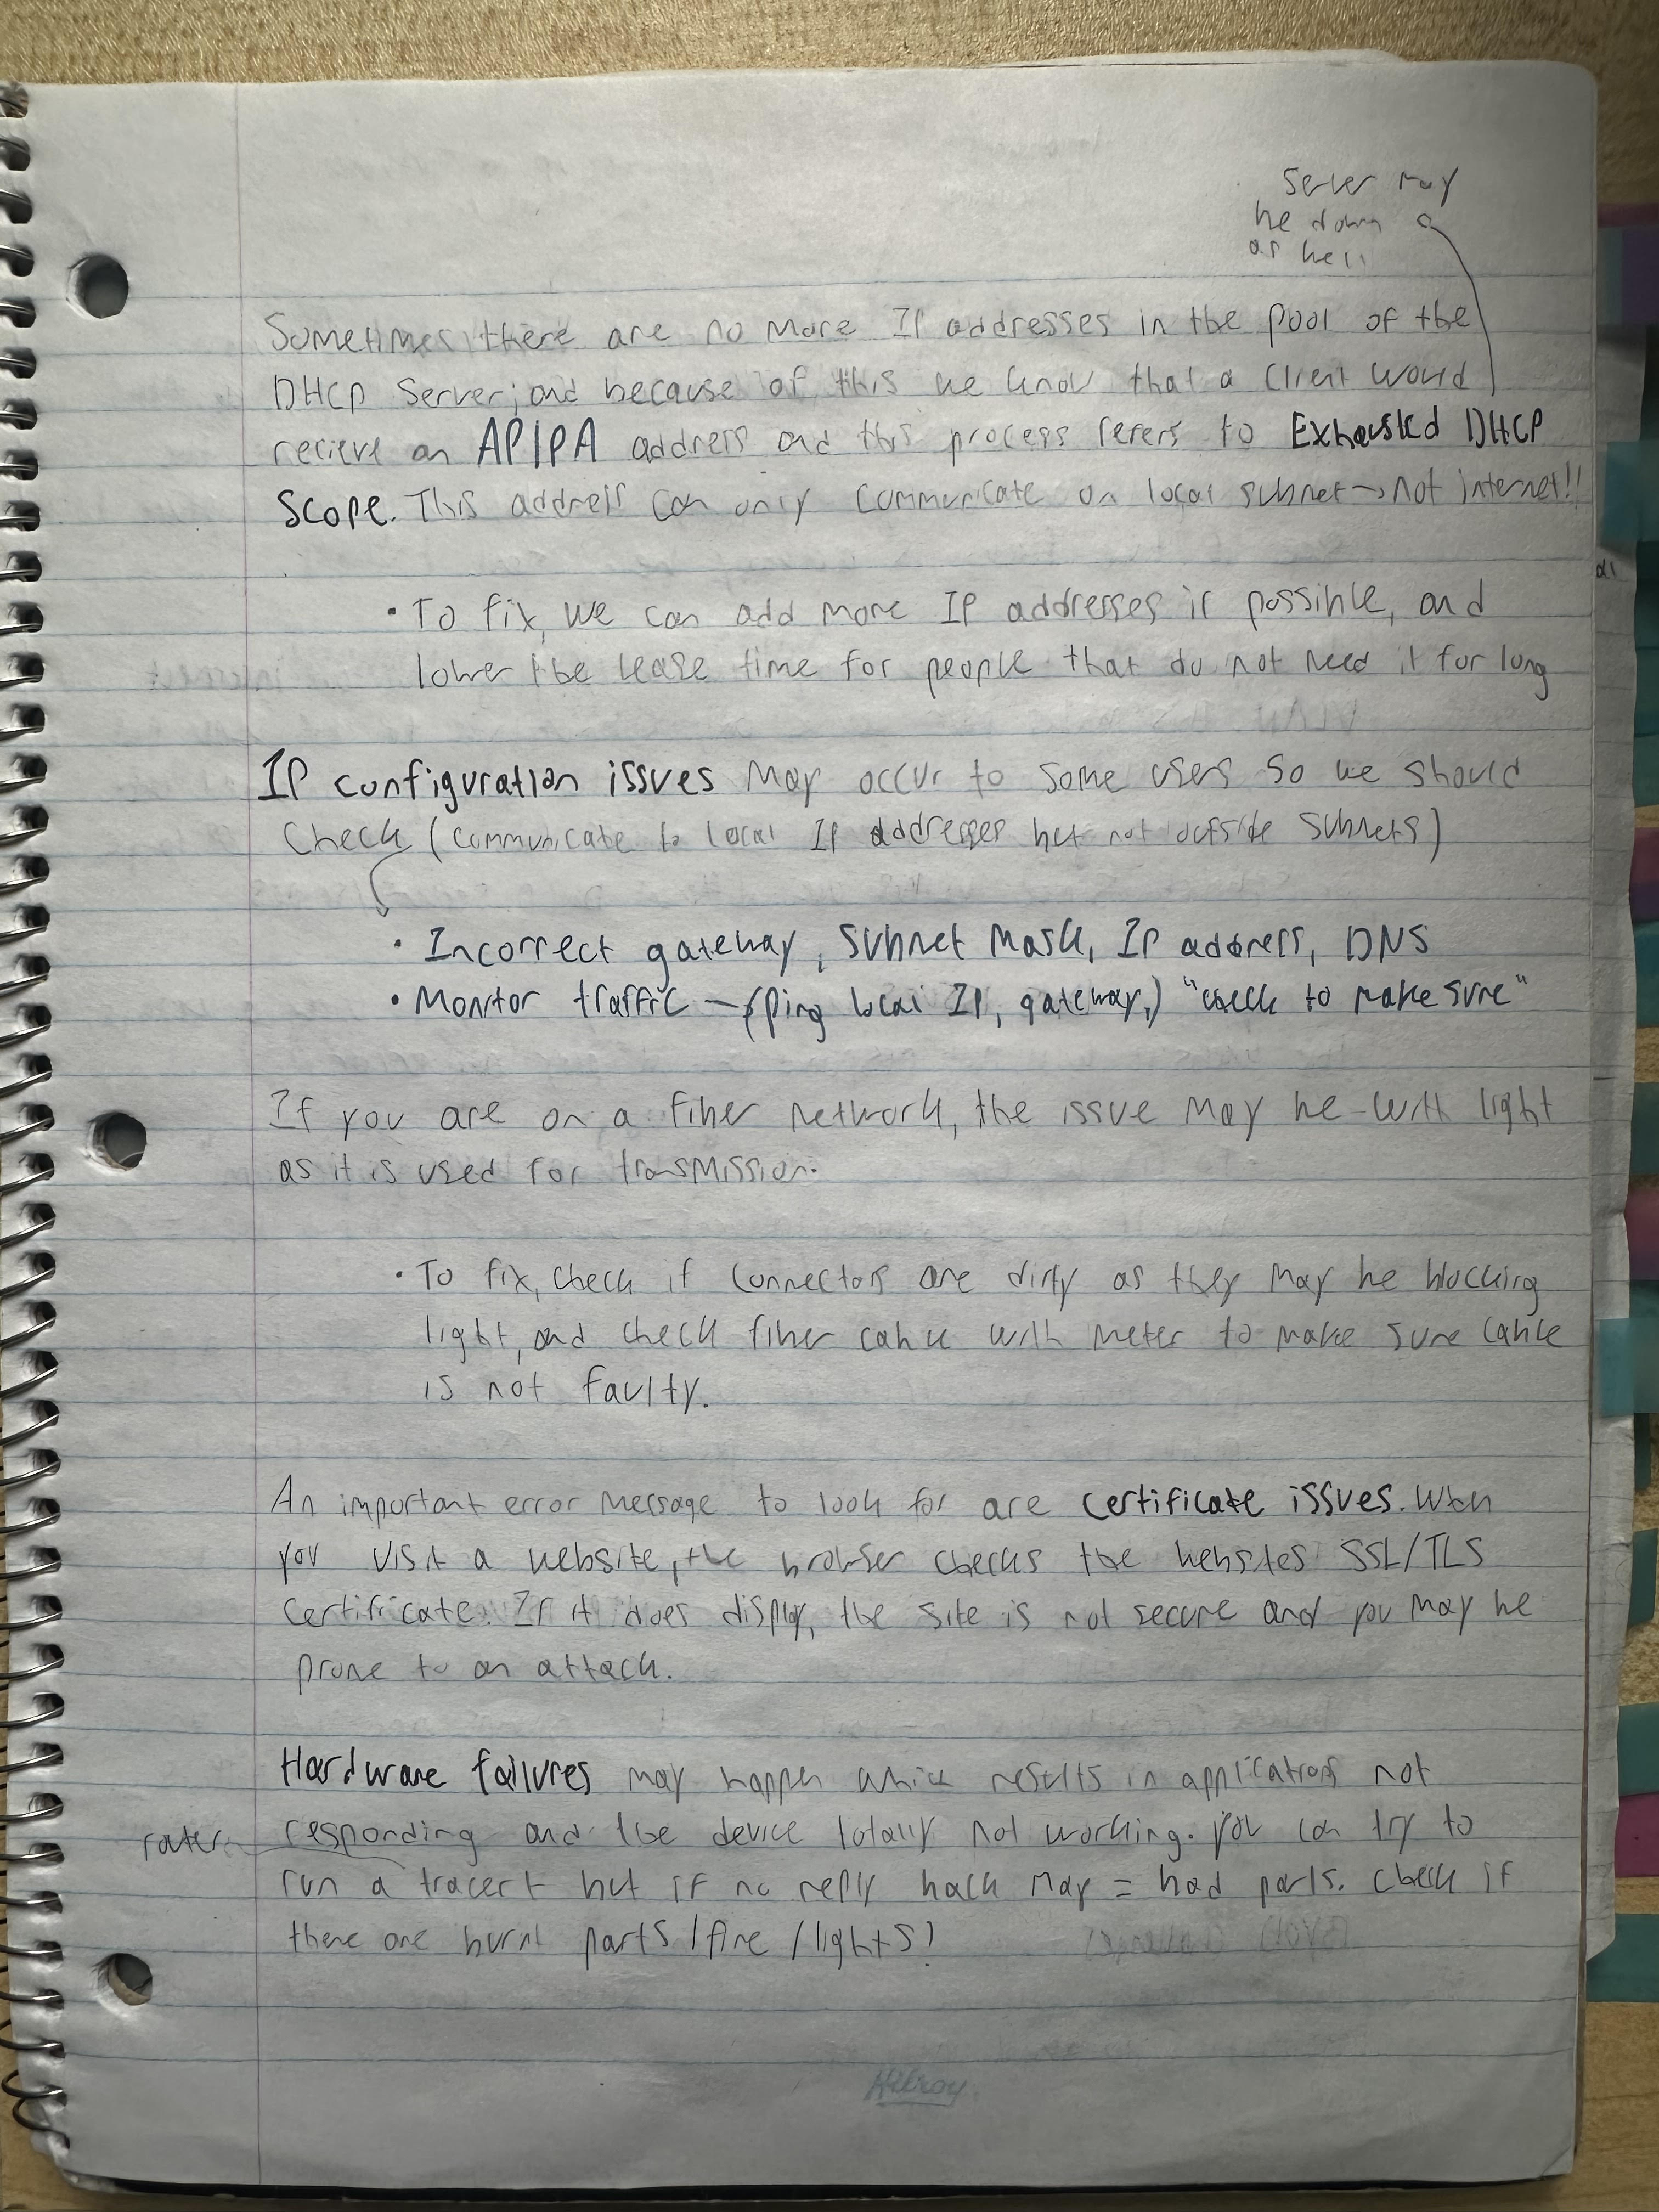 Server may
be down
as well
Sometimes there are no more IP addresses in the pool of the
DHCP Server; and because of this we know that a client would
recieve an APIPA address and this process refers to Exhausted DHCP
Scope. This address can only communicate on local subnet → not internet!!
• To fix, we can add more IP addresses if possible, and
lower the lease time for people that do not need it for long
IP configuration issues may occur to some users so we should
check (communicate to local IP addresses but not outside subnets)
• Incorrect gateway, subnet mask, IP address, DNS
• Monitor traffic → (ping local IP, gateway,) "check to make sure"
If you are on a fiber network, the issue may be with light
as it is used for transmission.
• To fix, check if connectors are dirty as they may be blocking
light, and check fiber cable with meter to make sure cable
is not faulty.
An important error message to look for are certificate issues. When
you visit a website, the browser checks the websites SSL/TLS
certificate. If it does display, the site is not secure and you may be
prone to an attack.
Hardware failures may happen which results in applications not
router responding and the device totally not working. You can try to
run a tracert but if no reply back may = bad parts. Check if
there are burnt parts/fire/lights!
Hilroy